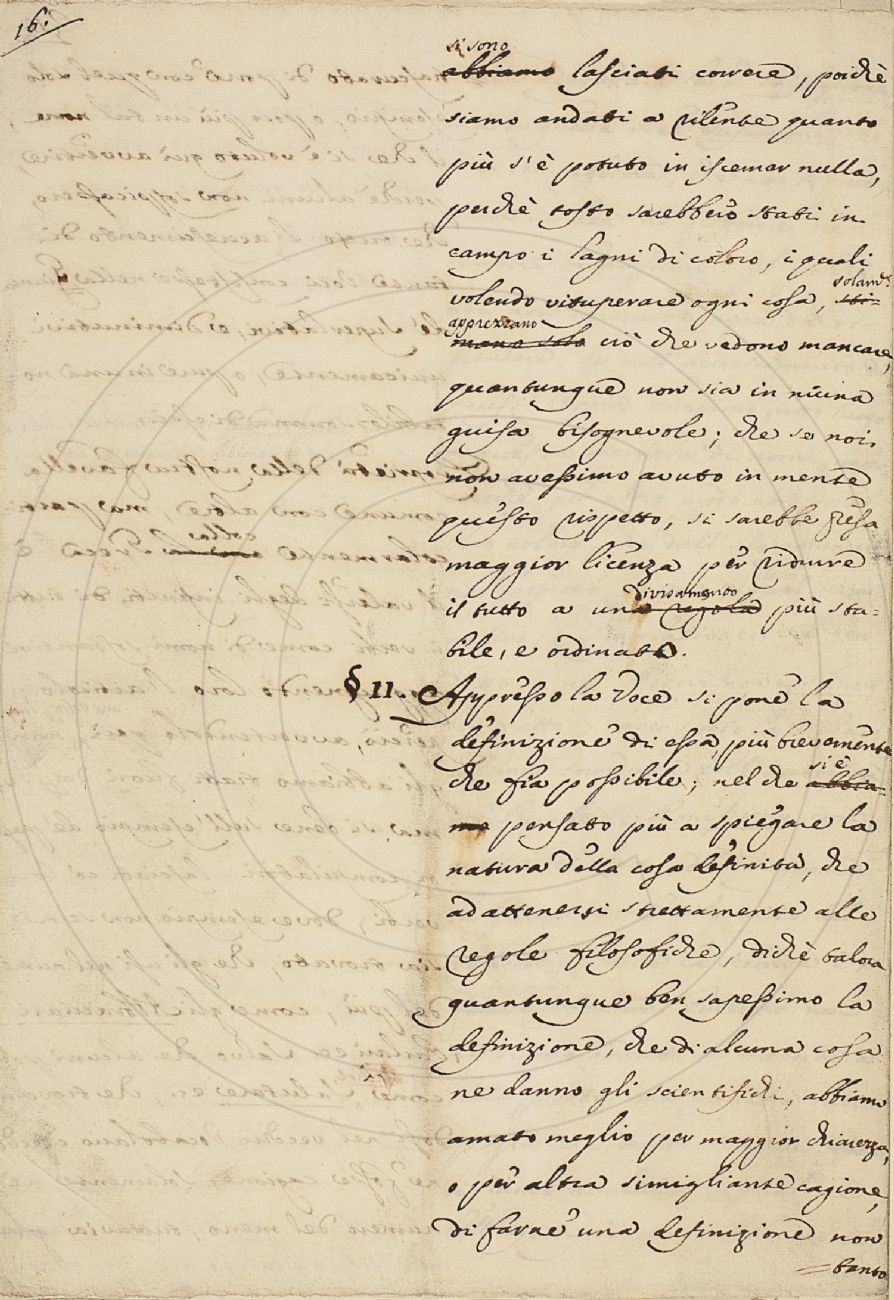 16.
si sono
abbiamo lasciati correre, poichè
siamo andati a rilente quanto
più s'è potuto in iscemar nulla,
perchè tosto sarebbero stati in
campo i lagni di coloro, i quali
volendo vituperare ogni cosa, solam.e sti-
apprezzano
mano solo ciò che vedono mancare,
quantunque non sia in niuna
guisa bisognevole; che se noi
non avessimo avuto in mente
questo rispetto, si sarebbe presa
maggior licenza per ridurre
divisamento
il tutto a una regola più sta=
bile, e ordinato.
§ II. Appresso la Voce si pone la
definizione di essa, più brevemente
che sia possibile; nel che si è abbia=
mo pensato più a spiegare la
natura della cosa definita, che
ad attenersi strettamente alle
regole filosofiche, dichè talora
quantunque ben sapessimo la
definizione, che di alcuna cosa
ne danno gli scientifichi, abbiamo
amato meglio per maggior chiarezza,
o per altra simigliante cagione,
di farne una definizione non
=tanto